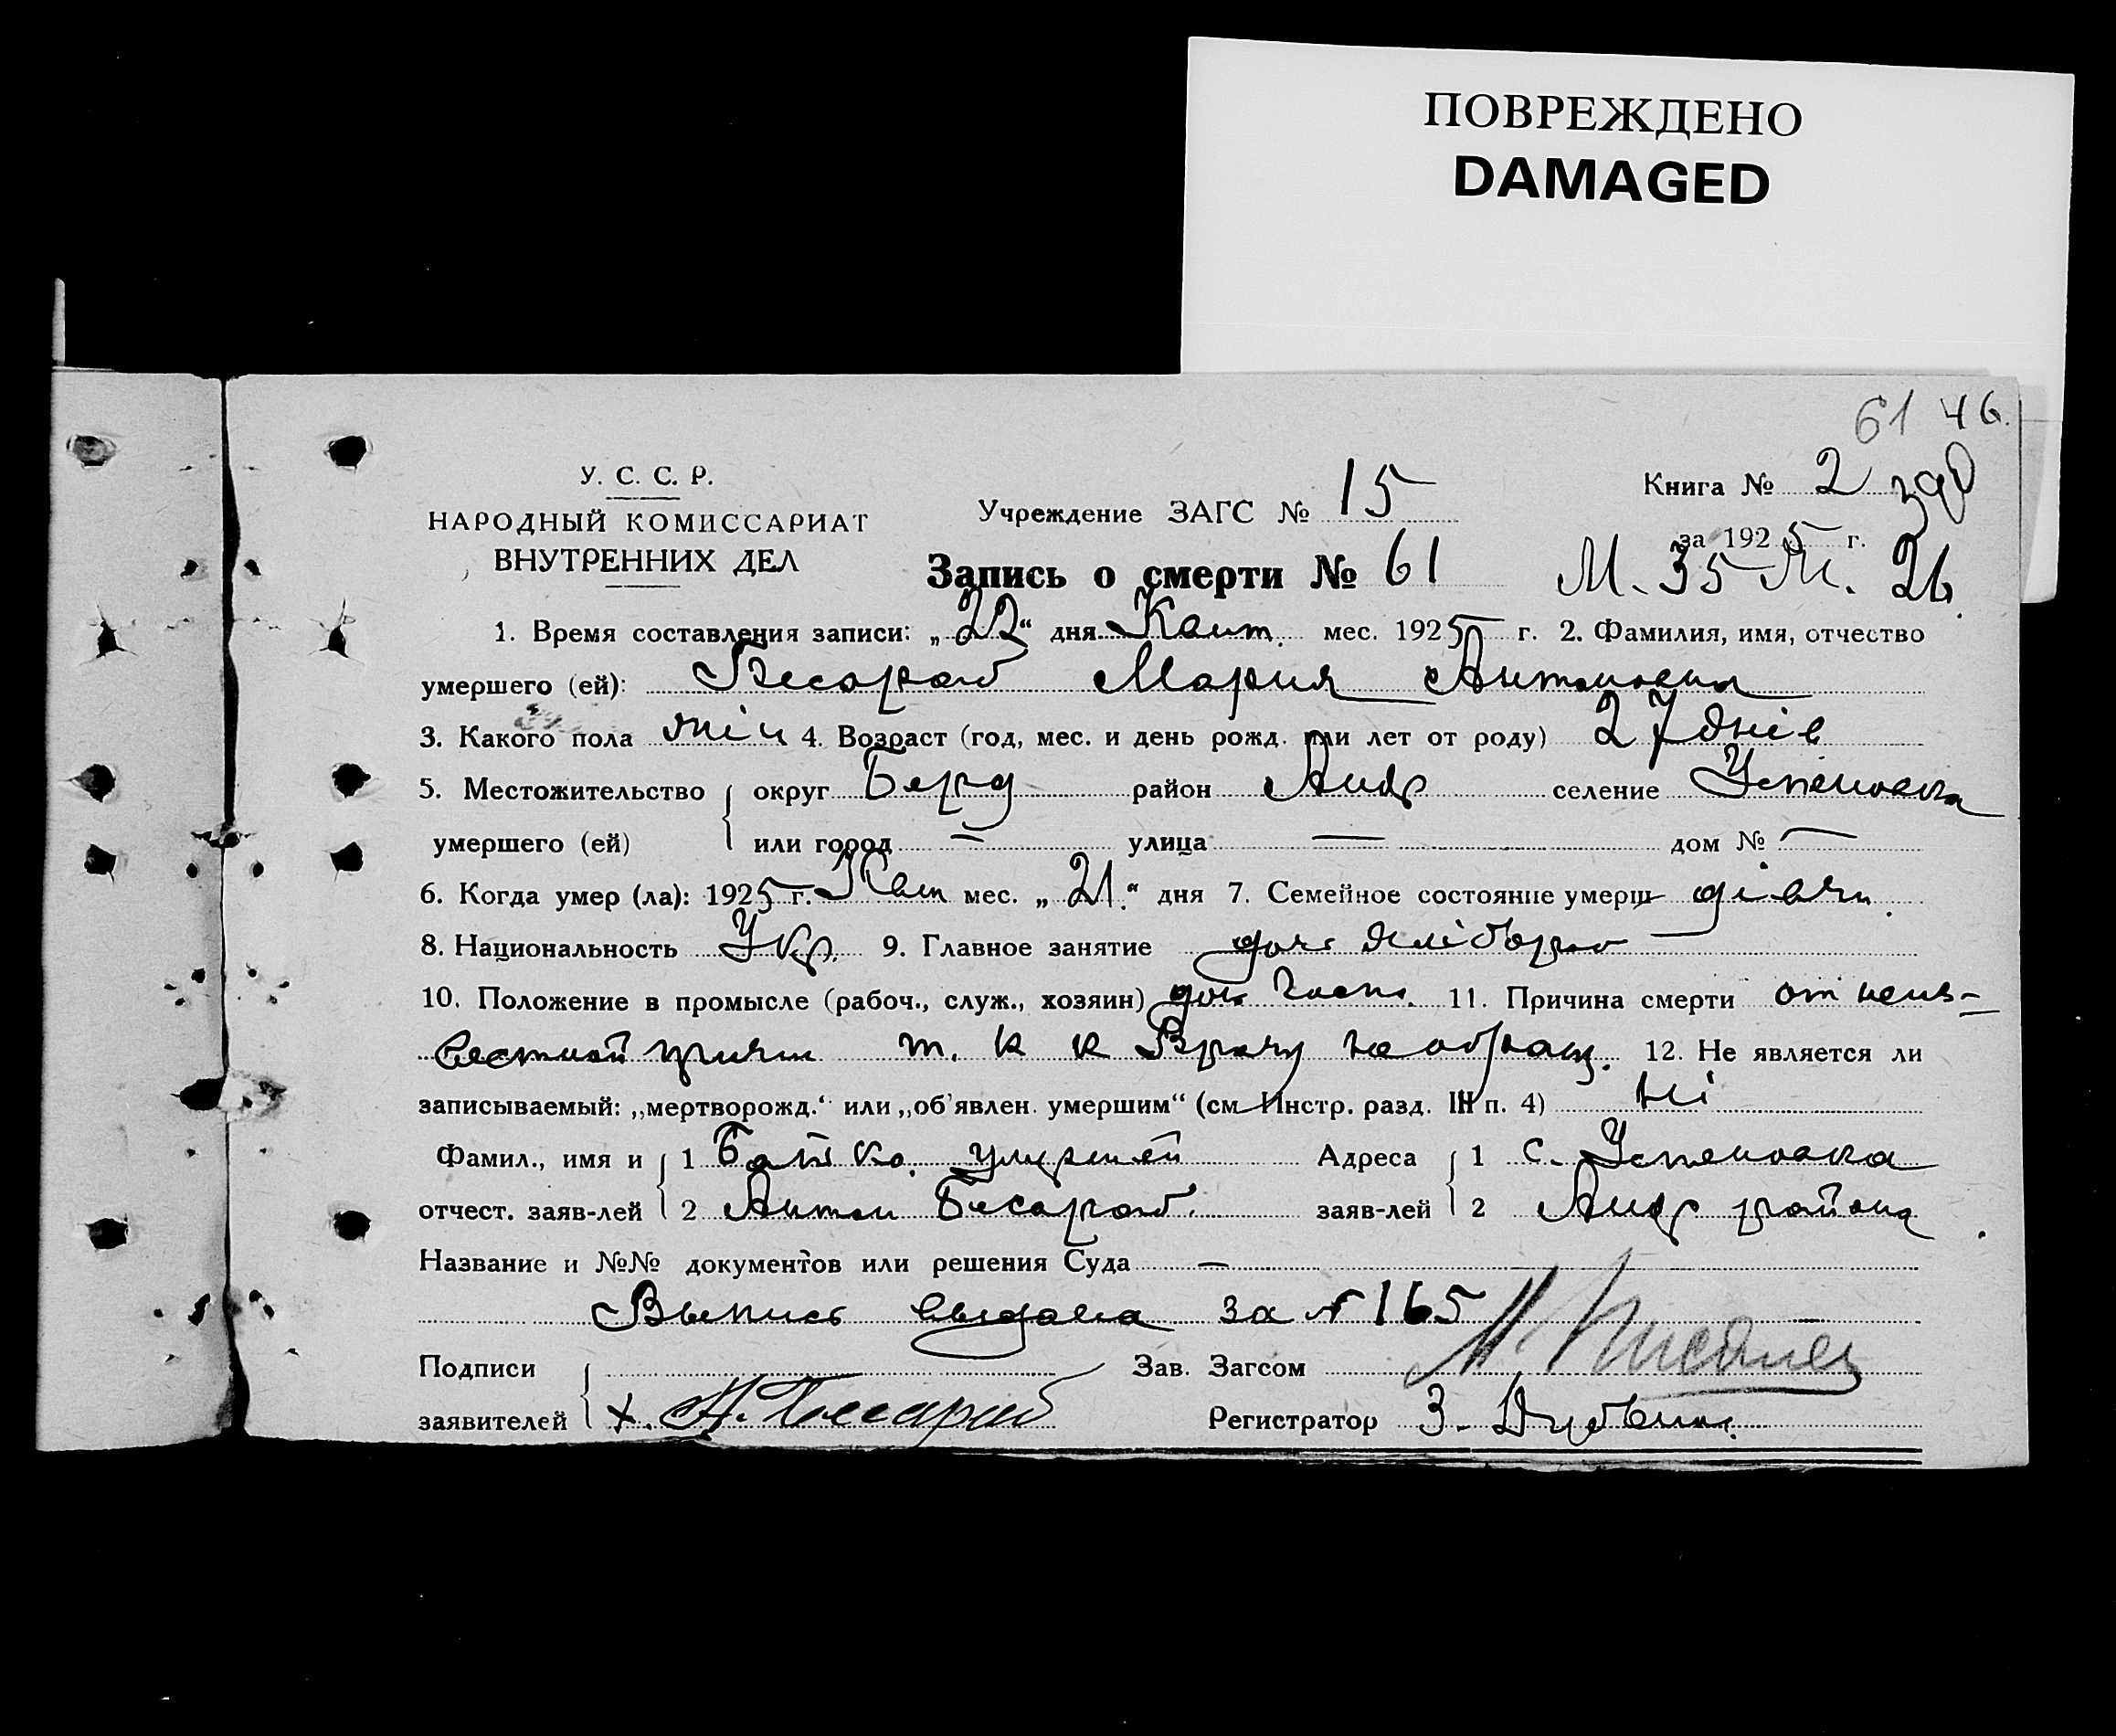 ПОВРЕЖДЕНО
DAMAGED
61 46.
У. С. С. Р.
НАРОДНЫЙ КОМИССАРИАТ
ВНУТРЕННИХ ДЕЛ
Учреждение ЗАГС № 15
Книга № 2
за 1925 г.
Запись о смерти № 61 М. 35 М. 26.
1. Время составления записи: „22“ дня Квит. мес. 1925 г. 2. Фамилия, имя, отчество
умершего (ей): Бесараб Мария Антоновна
3. Какого пола жін 4. Возраст (год, мес. и день рожд. или лет от роду) 27 днів
5. Местожительство округ Берд район Андр селение Успеновка
умершего (ей) или город — улица — дом № —
6. Когда умер (ла): 1925 г. Квіт мес. „21.“ дня 7. Семейное состояние умерш дівч.
8. Национальность Укр. 9. Главное занятие доч. хлібороб
10. Положение в промысле (рабоч., служ., хозяин) доч. хазя. 11. Причина смерти от неиз-
вестной причин т. к к Врачу не обращ. 12. Не является ли
записываемый: „мертворожд.“ или „об'явлен. умершим“ (см. Инстр. разд. III п. 4) Ні
Фамил., имя и 1 Батько умершей Адреса 1 с. Успеновка
отчест. заяв-лей 2 Антон Бесараб. заяв-лей 2 Андр района
Название и №№ документов или решения Суда —
Выпись выдана за № 165
Подписи Зав. Загсом
заявителей х. А. Бессараб Регистратор З.